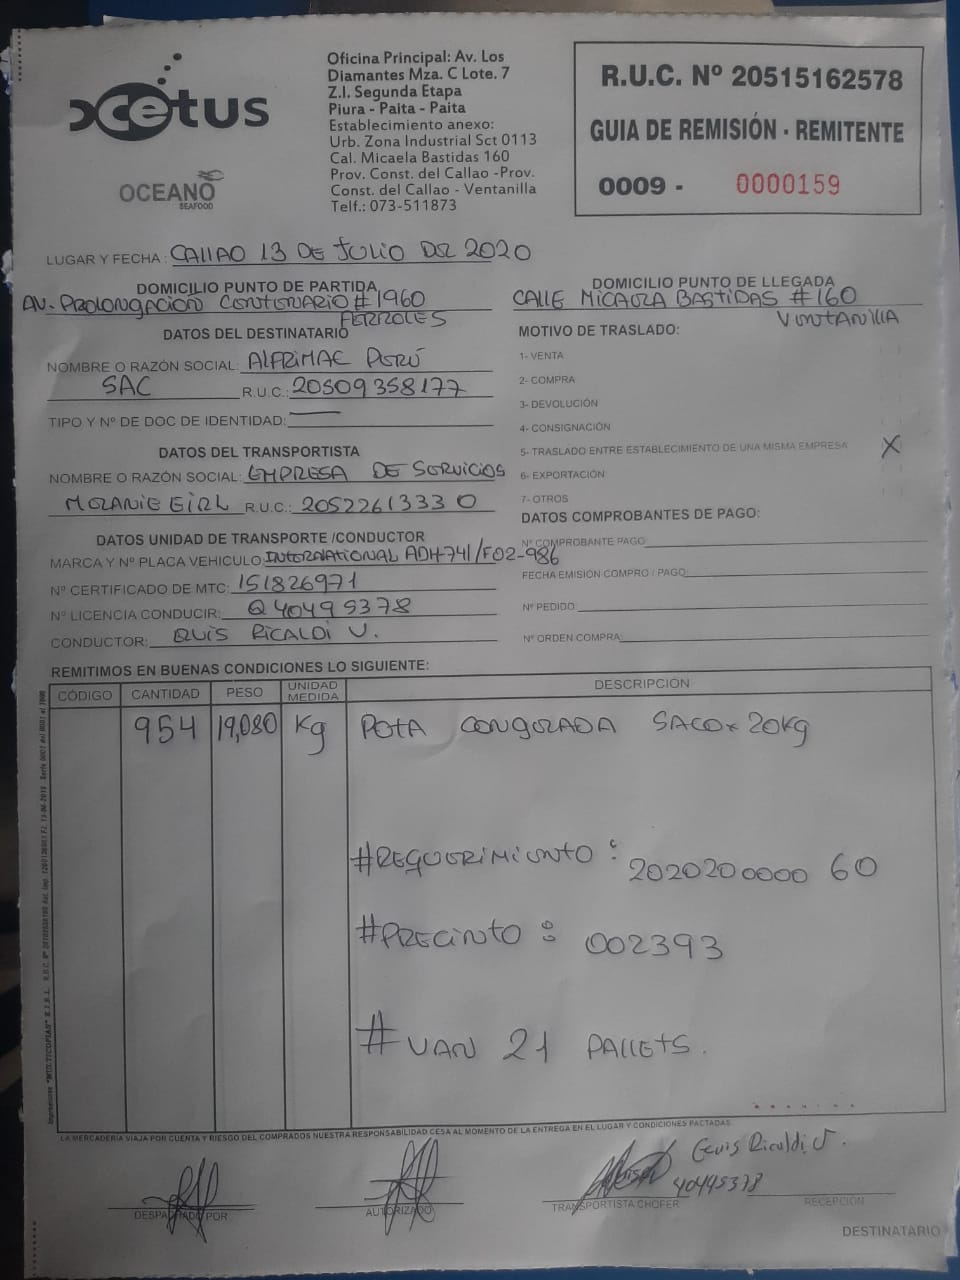 xcetus
OCEANO
SEAFOOD
Oficina Principal: Av. Los
Diamantes Mza. C Lote. 7
Z.I. Segunda Etapa
Piura - Paita - Paita
Establecimiento anexo:
Urb. Zona Industrial Sct 0113
Cal. Micaela Bastidas 160
Prov. Const. del Callao -Prov.
Const. del Callao - Ventanilla
Telf.: 073-511873
R.U.C. Nº 20515162578
GUIA DE REMISIÓN - REMITENTE
0009 - 0000159
LUGAR Y FECHA: CALLAO 13 DE JULIO DEL 2020
DOMICILIO PUNTO DE PARTIDA
AV. PROLONGACION CENTENARIO # 1960
FERROLES
DATOS DEL DESTINATARIO
NOMBRE O RAZÓN SOCIAL: ALFRIMAC PERÚ
SAC R.U.C.: 20509358177
TIPO Y Nº DE DOC DE IDENTIDAD:
DATOS DEL TRANSPORTISTA
NOMBRE O RAZÓN SOCIAL: EMPRESA DE SERVICIOS
MELANIE EIRL R.U.C.: 20522613330
DATOS UNIDAD DE TRANSPORTE /CONDUCTOR
MARCA Y Nº PLACA VEHICULO: INTERNATIONAL ADH-741/F02-986
Nº CERTIFICADO DE MTC: 151826971
Nº LICENCIA CONDUCIR: Q40495378
CONDUCTOR: RICALDI V.
DOMICILIO PUNTO DE LLEGADA
CALLE MICAELA BASTIDAS #160
VENTANILLA
MOTIVO DE TRASLADO:
1- VENTA
2- COMPRA
3- DEVOLUCIÓN
4- CONSIGNACIÓN
5- TRASLADO ENTRE ESTABLECIMIENTO DE UNA MISMA EMPRESA X
6- EXPORTACIÓN
7- OTROS
DATOS COMPROBANTES DE PAGO:
Nº COMPROBANTE PAGO
FECHA EMISIÓN COMPRO / PAGO:
Nº PEDIDO:
Nº ORDEN COMPRA:
REMITIMOS EN BUENAS CONDICIONES LO SIGUIENTE:
CÓDIGO CANTIDAD PESO UNIDAD MEDIDA DESCRIPCIÓN
954 19,080 Kg POTA CONGELADA SACO x 20Kg
#REQUERIMIENTO : 202020000060
#PRECINTO : 002393
# VAN 21 PALLETS.
LA MERCADERIA VIAJA POR CUENTA Y RIESGO DEL COMPRADOS NUESTRA RESPONSABILIDAD CESA AL MOMENTO DE LA ENTREGA EN EL LUGAR Y CONDICIONES PACTADAS.
Ricaldi V.
40495378
DESPACHADO POR
AUTORIZADO
TRANSPORTISTA CHOFER
RECEPCIÓN
DESTINATARIO